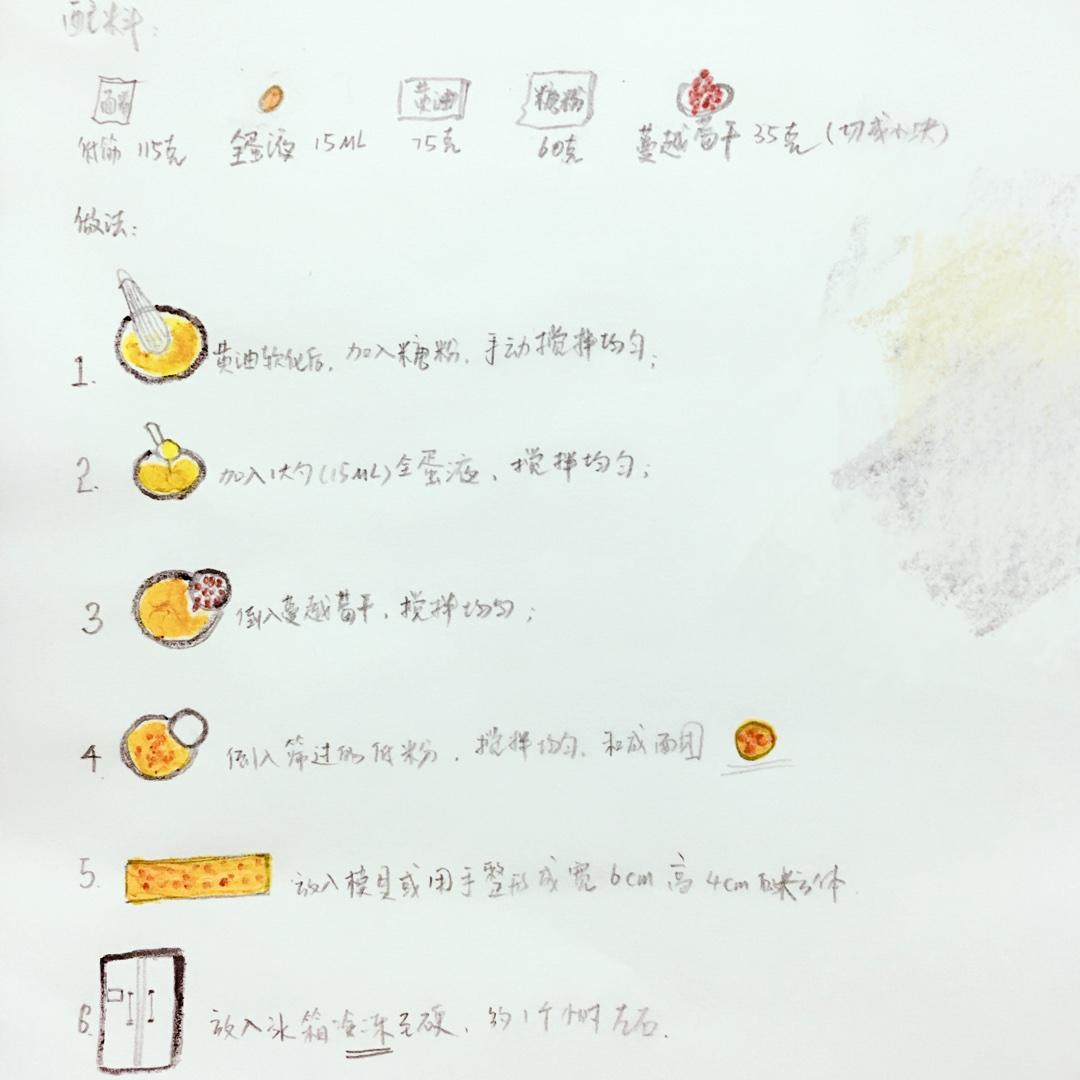 配料:
面粉 黄油 糖粉
低筋 115克 全蛋液 15ML 75克 60克 蔓越莓干 35克 (切成小块)
做法:
1. 黄油软化后, 加入糖粉, 手动搅拌均匀;
2. 加入1大勺(15ML)全蛋液, 搅拌均匀;
3 倒入蔓越莓干, 搅拌均匀;
4 倒入筛过的低粉, 搅拌均匀, 和成面团
5. 放入模具或用手整形成宽6cm高4cm的长方体.
6. 放入冰箱冷冻至硬, 约1个小时左右.